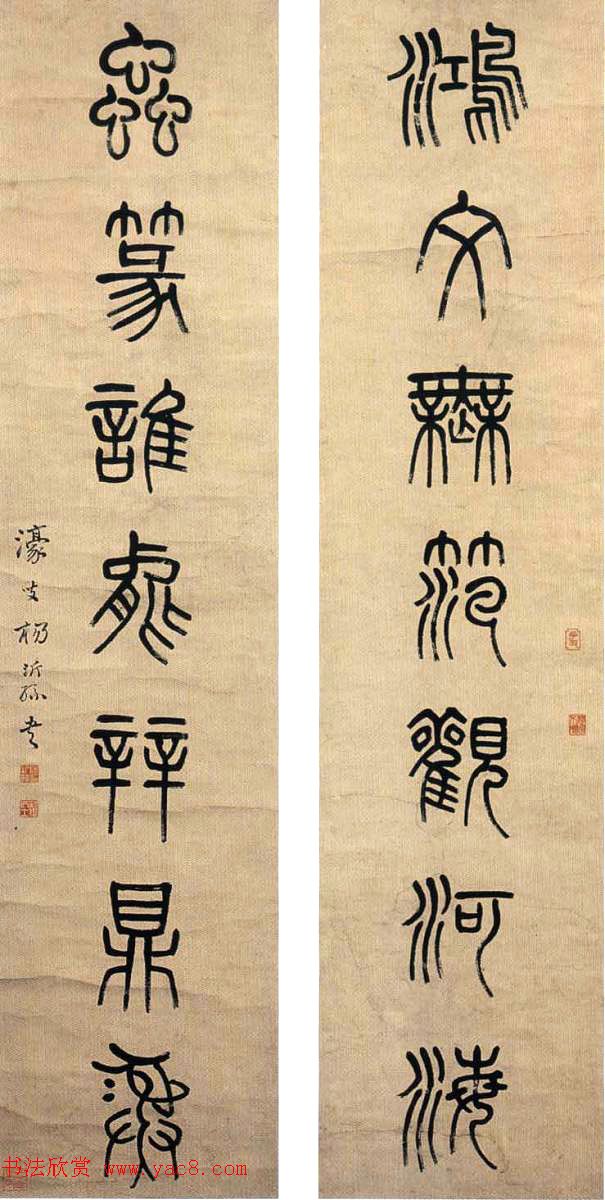 鴻文無笵觀河海
蟲篆誰能辡鼎彝
濠叟楊沂孫書
书法欣赏 www.yac8.com